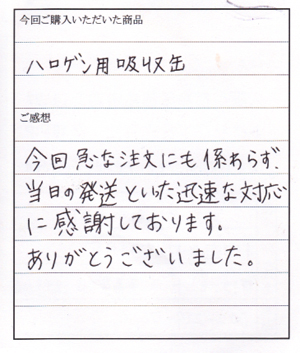 今回ご購入いただいた商品
ハロゲン用吸収缶
ご感想
今回急な注文にも係わらず、
当日の発送といた迅速な対応
に感謝しております。
ありがとうございました。